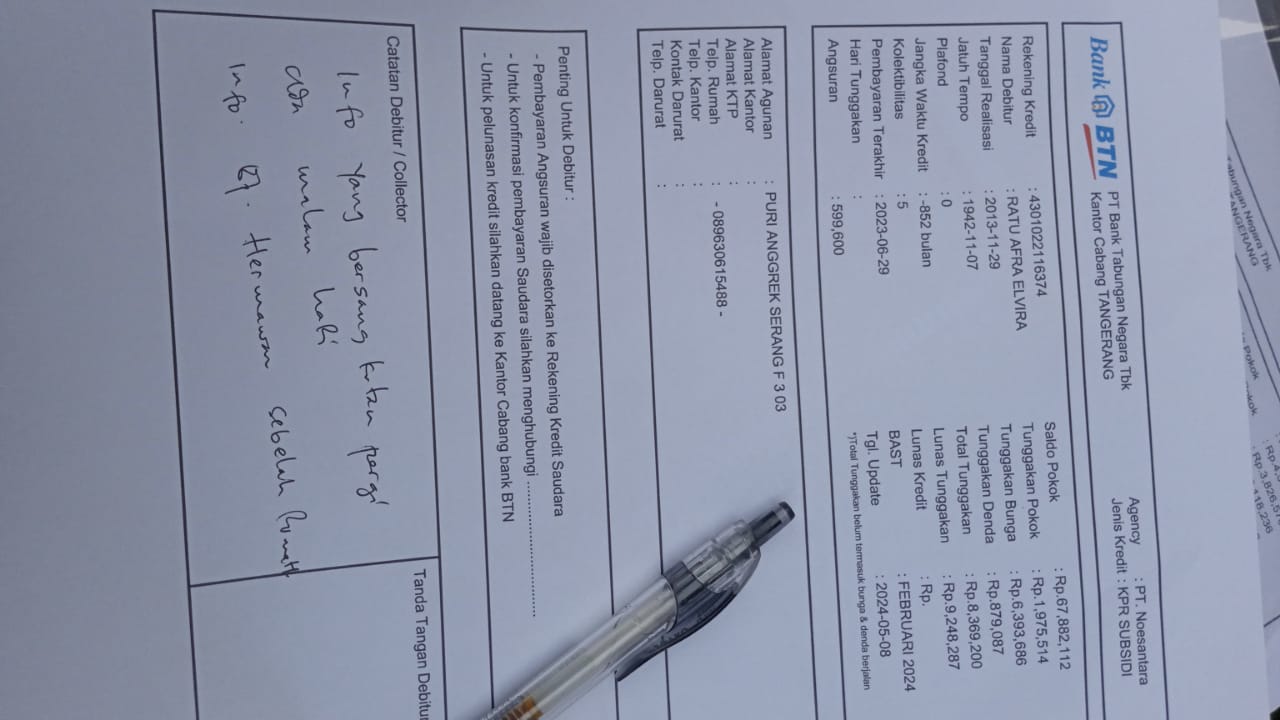 Bank BTN
PT Bank Tabungan Negara Tbk
Kantor Cabang TANGERANG
Agency : PT. Noesantara
Jenis Kredit : KPR SUBSIDI
Rekening Kredit : 4301022116374
Nama Debitur : RATU AFRA ELVIRA
Tanggal Realisasi : 2013-11-29
Jatuh Tempo : 1942-11-07
Plafond : 0
Jangka Waktu Kredit : -852 bulan
Kolektibilitas : 5
Pembayaran Terakhir : 2023-06-29
Hari Tunggakan :
Angsuran : 599,600
Saldo Pokok : Rp.67,882,112
Tunggakan Pokok : Rp.1,975,514
Tunggakan Bunga : Rp.6,393,686
Tunggakan Denda : Rp.879,087
Total Tunggakan : Rp.8,369,200
Lunas Tunggakan : Rp.9,248,287
Lunas Kredit : Rp.
BAST : FEBRUARI 2024
Tgl. Update : 2024-05-08
*)Total Tunggakan belum termasuk bunga & denda berjalan
Alamat Agunan : PURI ANGGREK SERANG F 3 03
Alamat Kantor :
Alamat KTP :
Telp. Rumah : - 089630615488 -
Telp. Kantor :
Kontak Darurat :
Telp. Darurat :
Penting Untuk Debitur :
- Pembayaran Angsuran wajib disetorkan ke Rekening Kredit Saudara
- Untuk konfirmasi pembayaran Saudara silahkan menghubungi ................................
- Untuk pelunasan kredit silahkan datang ke Kantor Cabang bank BTN
Catatan Debitur / Collector
Tanda Tangan Debitur
Info yang bersangkutan pergi
ada malam hari
Info. Bp. Hermawan sebelah rumah
Tabungan Negara Tbk
TANGERANG
Pokok